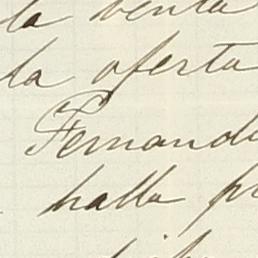 la venta
la oferta
Fernand
halla pr